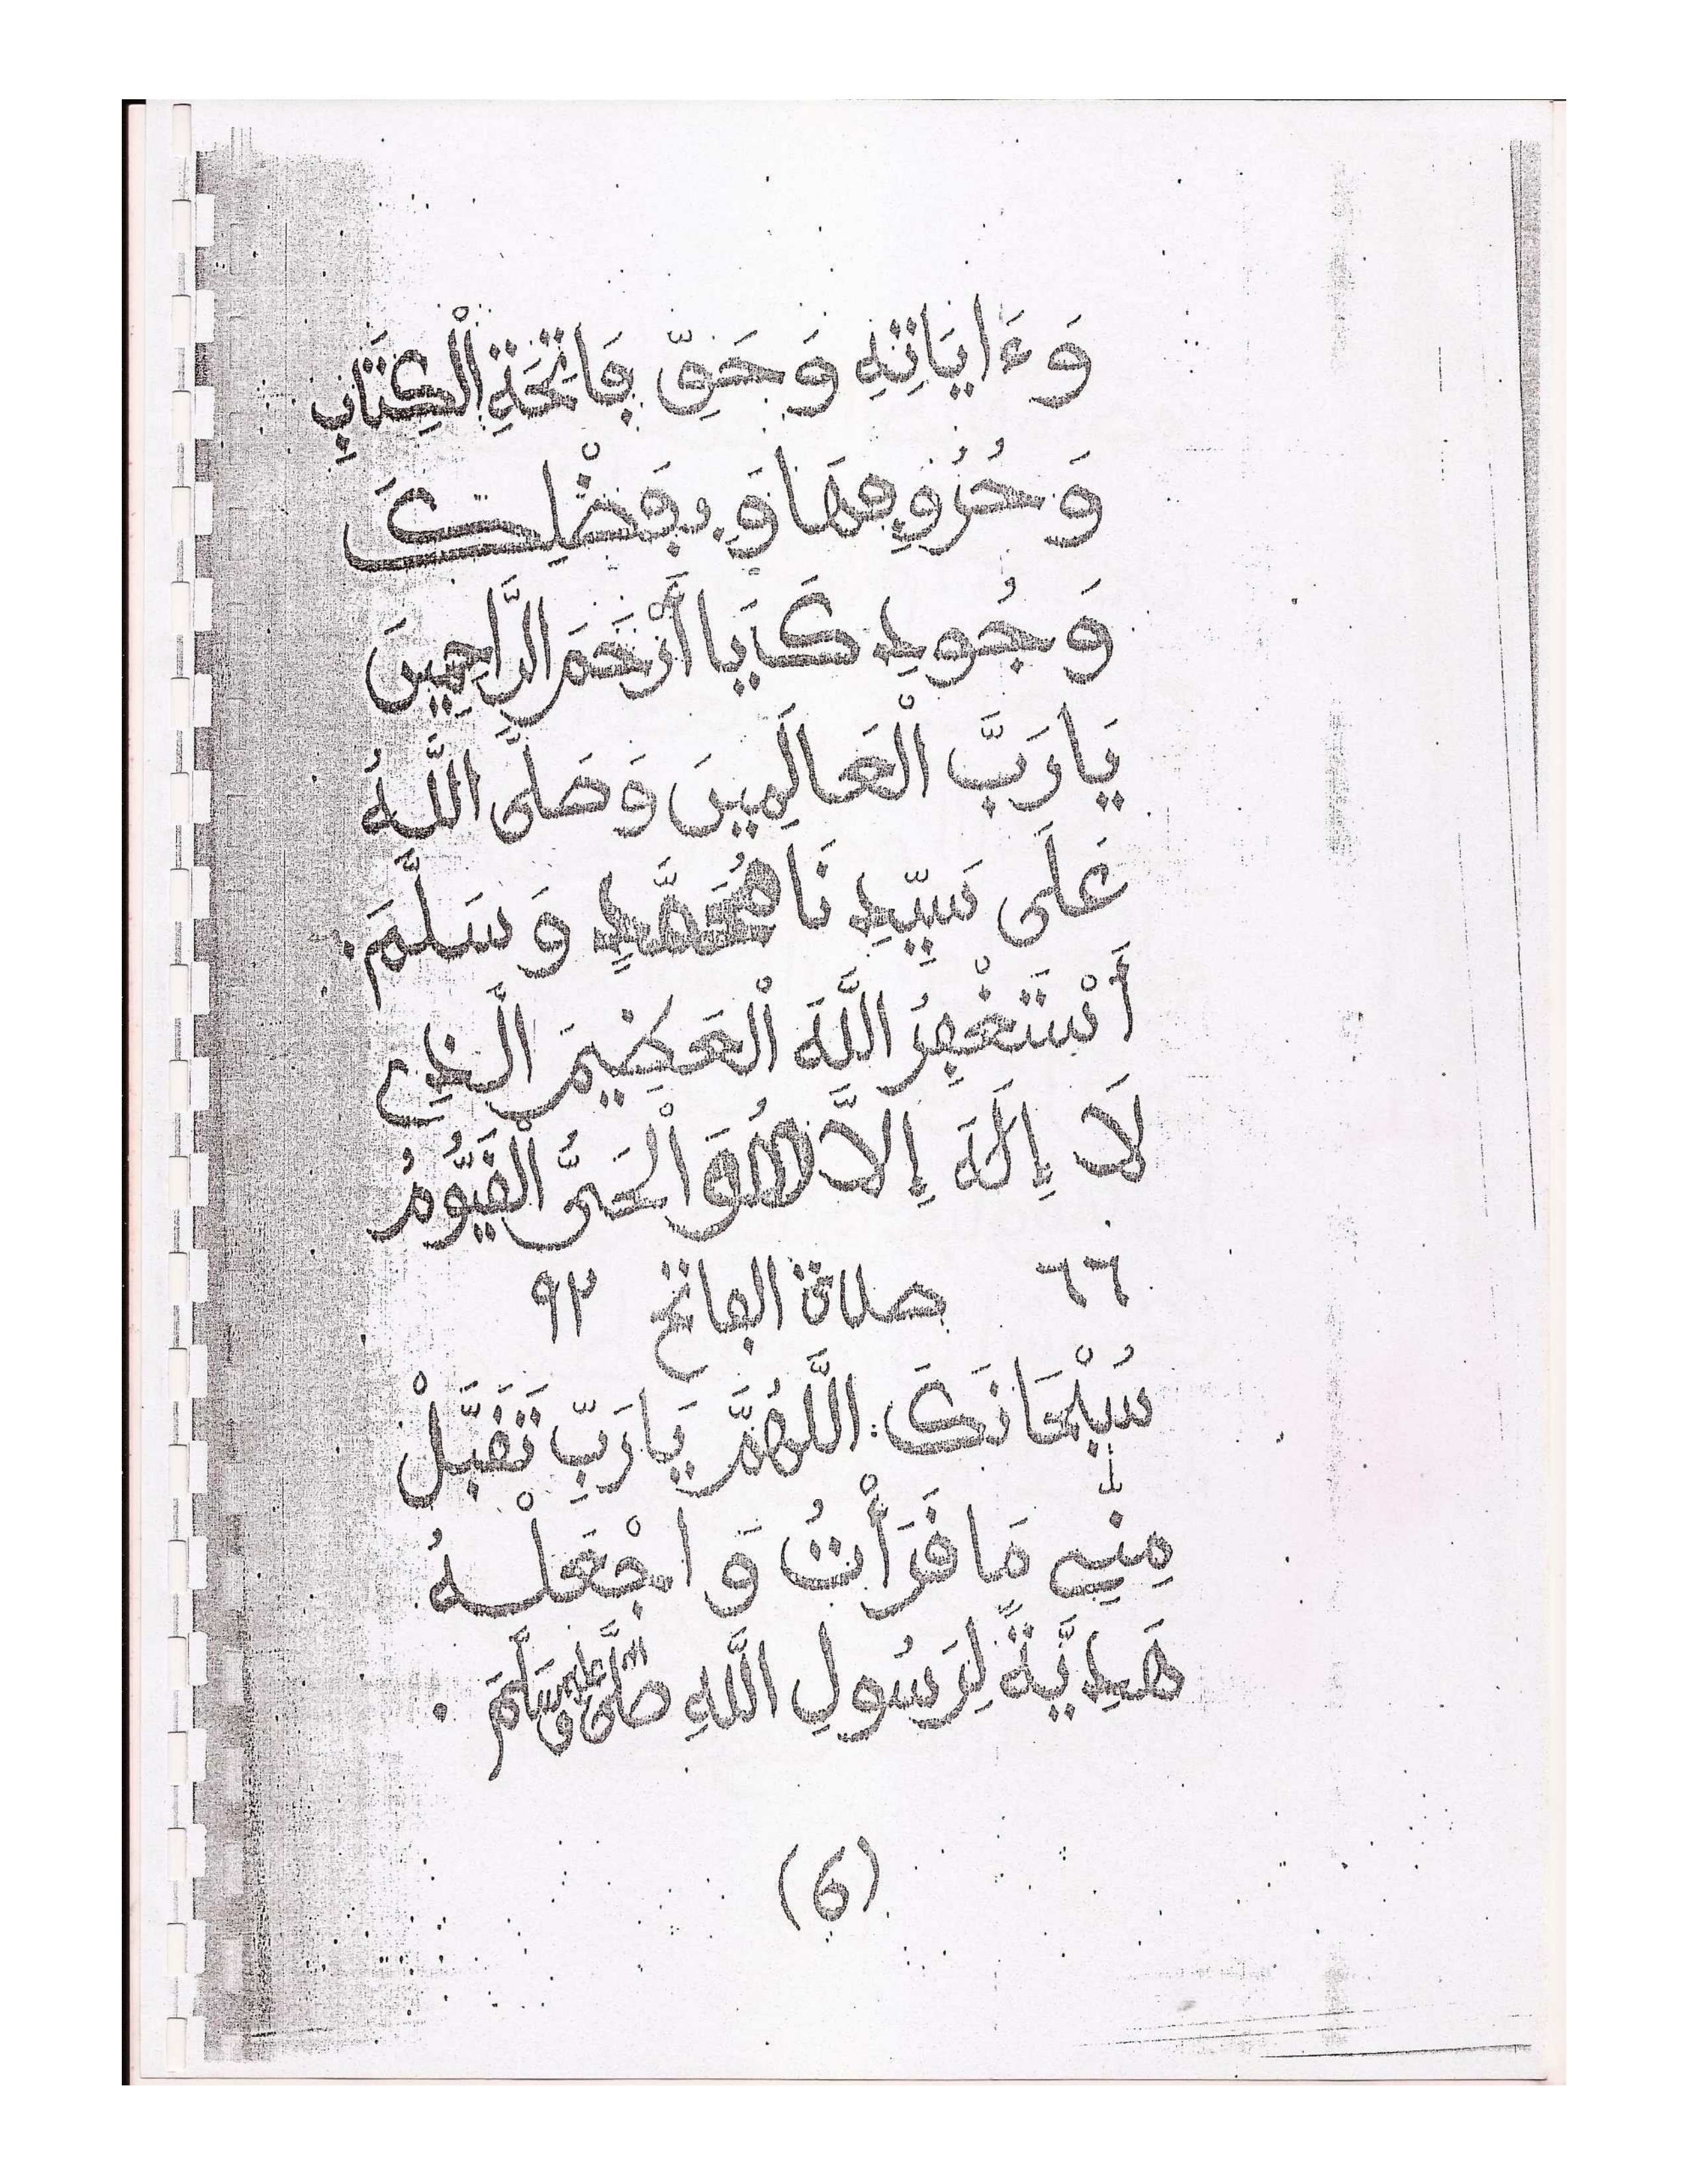 وَءَايَاتِهِ وَحَقِّ فَاتِحَةِ الْكِتَابِ
وَحُرُوفِهَا وَبِفَضْلِكَ
وَجُودِكَ يَا أَرْحَمَ الرَّاحِمِينَ
يَا رَبَّ الْعَالَمِينَ وَصَلَّى اللَّهُ
عَلَى سَيِّدِنَا مُحَمَّدٍ وَسَلَّمَ.
أَسْتَغْفِرُ اللَّهَ الْعَظِيمَ الَّذِي
لَا إِلَهَ إِلَّا هُوَ الْحَىُّ الْقَيُّومُ
٦٦ صلاة الفاتح ٩٢
سُبْحَانَكَ اللَّهُمَّ يَا رَبِّ تَقَبَّلْ
مِنِّي مَا قَرَأْتُ وَاجْعَلْهُ
هَدِيَّةً لِرَسُولِ اللَّهِ صَلَّى اللَّهُ عَلَيْهِ وَسَلَّمَ.
(6)